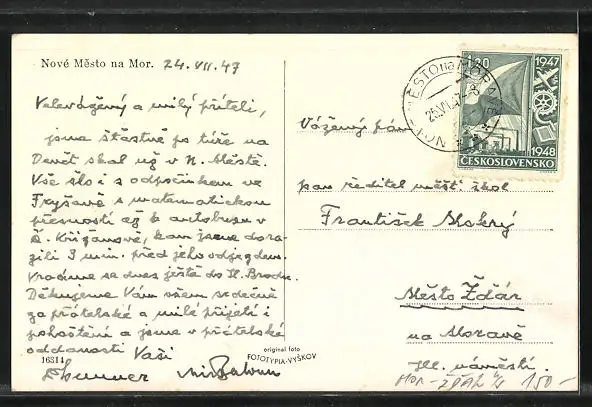 Nové Město na Mor. 24.VII.47
Velevážený a milý příteli,
jsme šťastně po túře na
Devět skal už v N. Městě.
Vše šlo i s odpočinkem ve
Fryšavě s matematickou
přesností až k autobusu v
kam jsme dora-
zili 3 min. před jeho odjezdem.
Vracíme se dnes ještě do Brodu.
Děkujeme Vám všem srdečně
za přátelské a milé přijetí i
pohoštění a jsme v přátelské
oddanosti Vaši
16311
original foto
FOTOTYPIA-VYŠKOV
Vážený pán
pan ředitel měšť. škol
František Mokrý
Město Žďár
na Moravě
Hl. náměstí.
150-
1.20 1947
1948
ČESKOSLOVENSKO